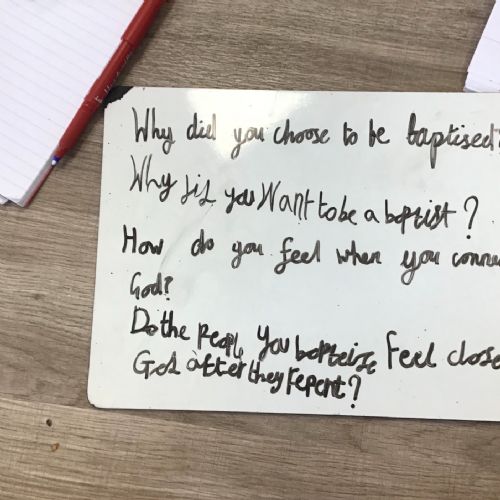 Why did you choose to be baptised?
Why did you want to be a baptist?
How do you feel when you conne
God?
Do the people you bapteize feel close
God after they repent?